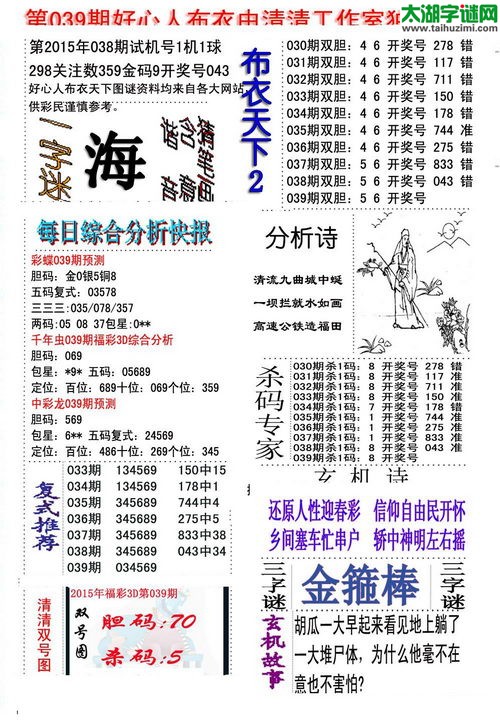 第039期好心人布衣由清清工作室
太湖字谜网
www.taihuzimi.com
第2015年038期试机号1机1球
298关注数359金码9开奖号043
好心人布衣天下图谜资料均来自各大网站,
供彩民谨慎参考。
一字谜
海
布衣天下2
030期双胆：4 6 开奖号 278 错
031期双胆：4 6 开奖号 117 错
032期双胆：4 6 开奖号 711 错
033期双胆：4 6 开奖号 150 错
034期双胆：4 6 开奖号 178 错
035期双胆：4 6 开奖号 744 准
036期双胆：4 6 开奖号 275 错
037期双胆：5 6 开奖号 833 错
038期双胆：5 6 开奖号 043 错
039期双胆：5 6 开奖号
每日综合分析快报
彩蝶039期预测
胆码：金0银5铜8
五码复式：03578
三三三:035/078/357
两码:05 08 37包星:0**
千年虫039期福彩3D综合分析
胆码：069
包星：*9* 五码：05689
定位：百位：689十位：069个位：359
中彩龙039期预测
胆码：569
包星：6** 五码复式：24569
定位：百位：486十位：269个位：345
分析诗
清流九曲城中蜒
一坝拦就水如画
高速公铁造福田
杀码专家
030期杀1码：8 开奖号 278 错
031期杀1码：8 开奖号 117 准
032期杀1码：8 开奖号 711 准
033期杀1码：8 开奖号 150 准
034期杀1码：7 开奖号 178 错
035期杀1码：1 开奖号 744 准
036期杀1码：1 开奖号 275 准
037期杀1码：1 开奖号 833 准
038期杀1码：8 开奖号 043 准
039期杀1码：8 开奖号
复式推荐
033期 134569 150中15
034期 134569 178中1
035期 345689 744中4
036期 345689 275中5
037期 345689 833中38
038期 345689 043中34
039期 034569
玄机诗
还原人性迎春彩 信仰自由民开怀
乡间塞车忙串户 轿中神明左右摇
清清双号图
2015年福彩3D第039期
双号图
胆码:70
杀码:5
三字谜
金箍棒
三字谜
玄机故事
胡瓜一大早起来看见地上躺了
一大堆尸体，为什么他毫不在
意也不害怕?